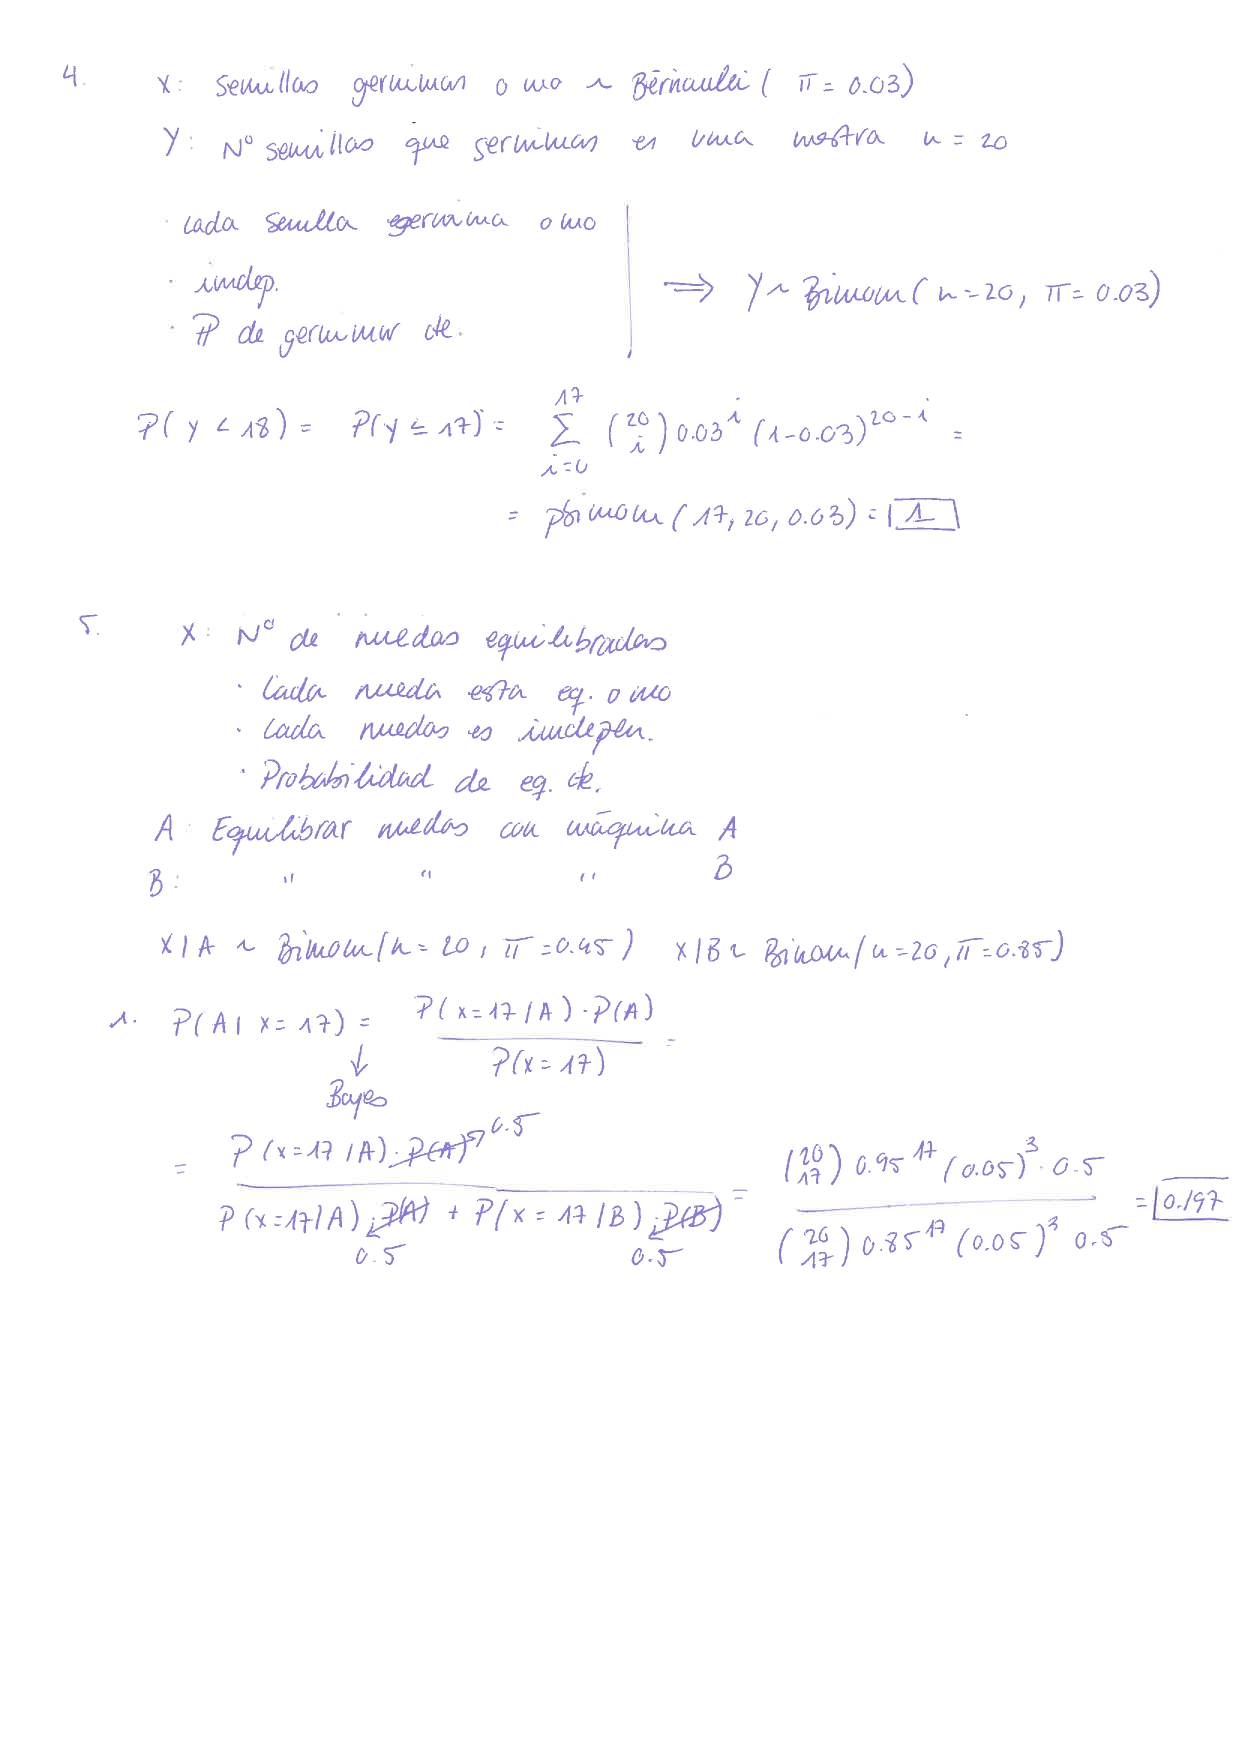 4. X: Semillas germinan o no ~ Bernoulli ( π = 0.03)
Y: Nº semillas que germinan en una mostra n = 20
· Cada semilla germina o no
· indep.
· P de germinar cte.
⟹ Y ~ Binom ( n = 20, π = 0.03)
P( y < 18) = P(y ≤ 17) = ∑_{i=0}^{17} (20 i) 0.03^i (1-0.03)^{20-i} =
= pbinom (17, 20, 0.03) = 1
5. X: Nº de ruedas equilibradas
· Cada rueda esta eq. o no
· Cada ruedas es indepen.
· Probabilidad de eq. cte.
A Equilibrar ruedas con máquina A
B: " " " B
X|A ~ Binom (n = 20, π = 0.95) X|B ~ Binom (n = 20, π = 0.85)
1. P(A| X = 17) = P( x = 17 / A) · P(A) / P(x = 17) =
↓
Bayes
= P (x = 17 / A) · P(A) 0.5 / P (x = 17 / A) · P(A) + P (x = 17 / B) · P(B) = (20 17) 0.95^17 (0.05)^3 · 0.5 / (20 17) 0.85^17 (0.05)^3 0.5 = 0.197
0.5 0.5